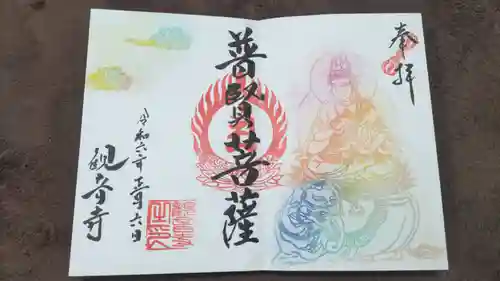 奉拝
普賢菩薩
令和六年
正月六日
観音寺